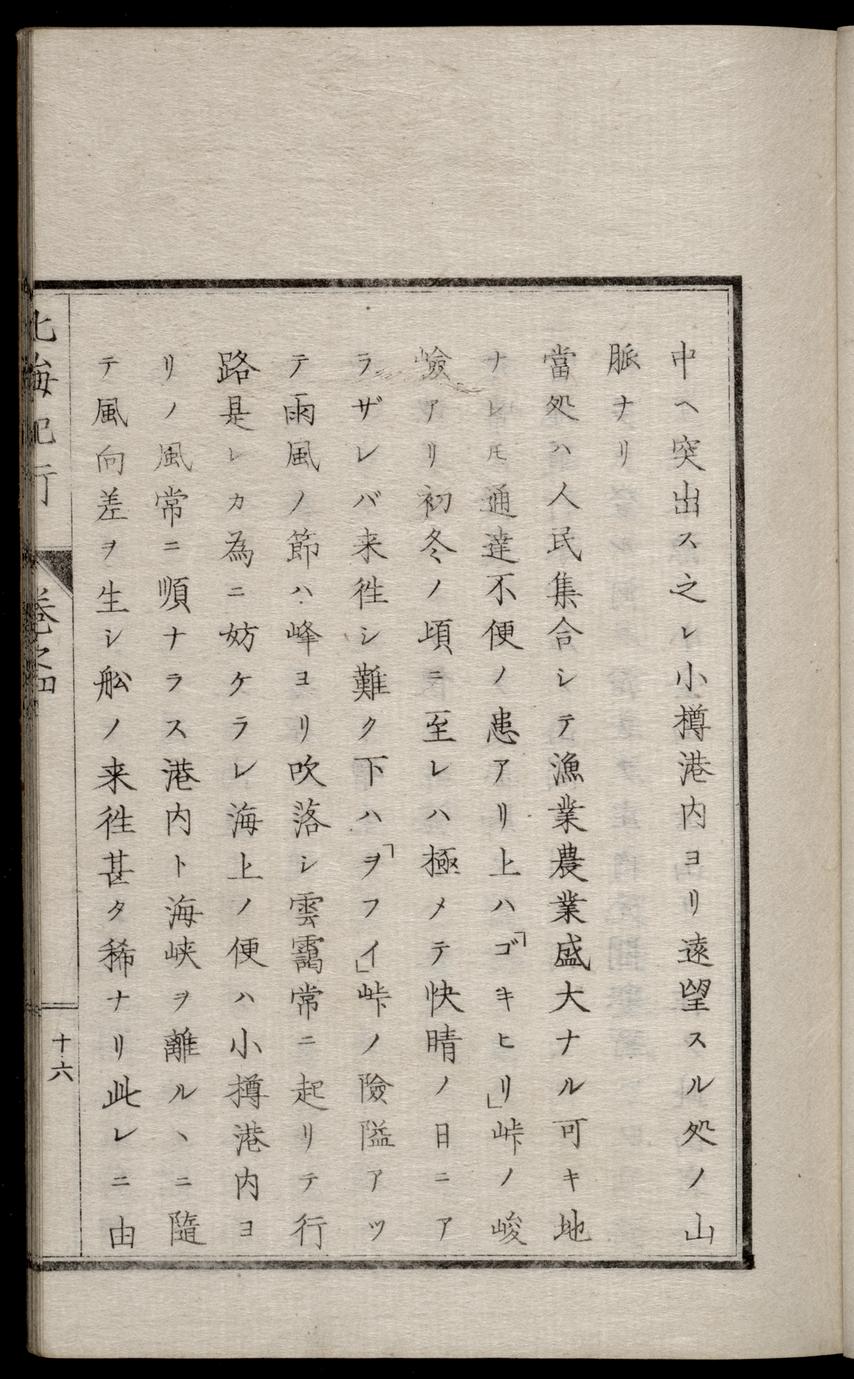 中ヘ突出ス之レ小樽港内ヨリ遠望スル処ノ山
脈ナリ
當処ハ人民集合シテ漁業農業盛大ナル可キ地
ナレ𪜈通達不便ノ患アリ上ハ「ゴキヒリ」峠ノ峻
嶮アリ初冬ノ頃ニ至レハ極メテ快晴ノ日ニア
ラザレバ来徃シ難ク下ハ「ヲフイ」峠ノ險隘アツ
テ雨風ノ節ハ峰ヨリ吹落シ雲靄常ニ起リテ行
路是レカ為ニ妨ケラレ海上ノ便ハ小樽港内ヨ
リノ風常ニ順ナラス港内ト海峡ヲ離ルヽニ隨
テ風向差ヲ生シ舩ノ来徃甚タ稀ナリ此レニ由
北海紀行 巻之四 十六